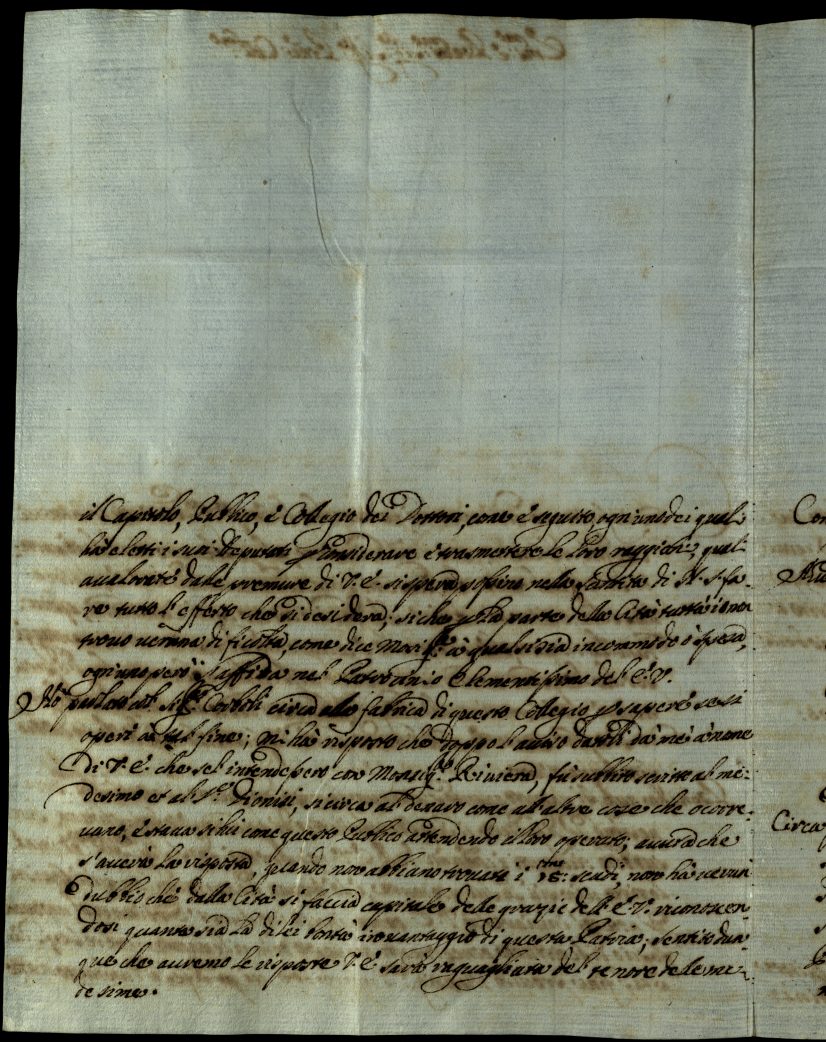 il Capitolo, Publico, e Collegio dei Dottori, come è seguito, ogn'uno dei quali
hà eletti i suoi Deputati p considerare e trasmettere le loro raggioni, quali
avalorate dale premure di V. E. si spera possino nella Santità di N. S. fa-
re tutto l'effetto che si desidera; siche p la parte della Città tutta io non
trovo veruna dificoltà come dice Mons. à qualsisia incommodo ò spesa,
ogn'uno però s'affida nel Patrocinio Clementissimo del E. V.
Hò parlato al Sig. Corboli circa alla fabrica di questo Collegio p sapere se si
operi à tal fine; mi hà risposto che doppo l'aviso datoli da mè à nome
di V. E. che sel'intendesse con Monsig. Riviera, fù subbito scritto al me-
desimo et al Dionisi, si circa al denaro come all'altre cose che ocorre-
vano, e stava si lui come questo Publico attendendo il loro operato;
s'averà la risposta, quando non abbiano trovati i 15: scudi, non hà verun
dubbio che dalla Città si faccia capitale delle grazie dell'E. V. riconoscen-
dosi quanto sia la di lei bontà in vantaggio di questa Patria; sentito dun-
que che avremo le risposte V. E. sarà raguagliata del tenore dele me-
desime.
Con
Circa